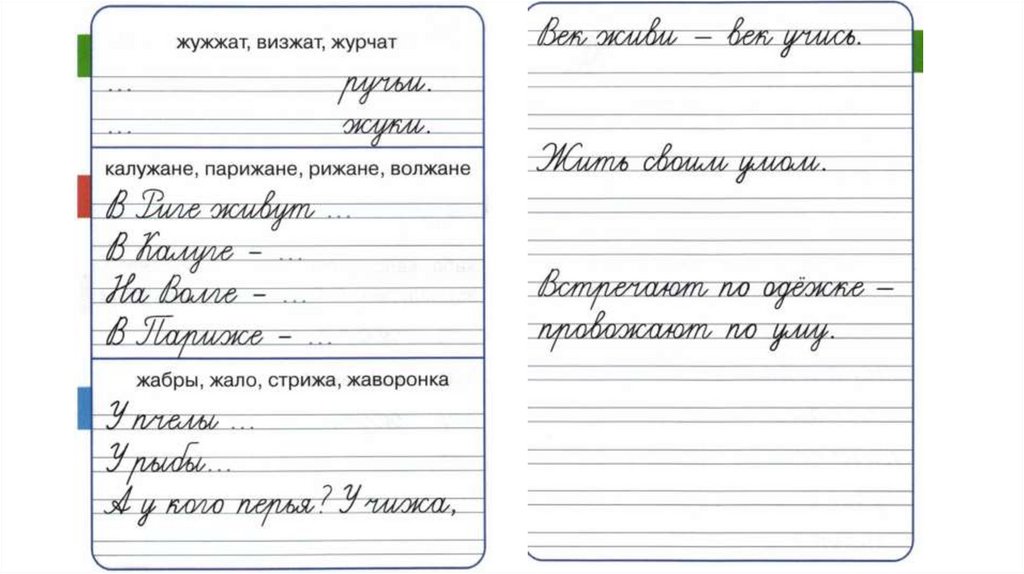 жужжат, визжат, журчат
... ручьи.
... жуки.
калужане, парижане, рижане, волжане
В Риге живут ...
В Калуге – ...
На Волге – ...
В Париже – ...
жабры, жало, стрижа, жаворонка
У пчелы ...
У рыбы...
А у кого перья? У чижа,
Век живи – век учись.
Жить своим умом.
Встречают по одёжке –
провожают по уму.